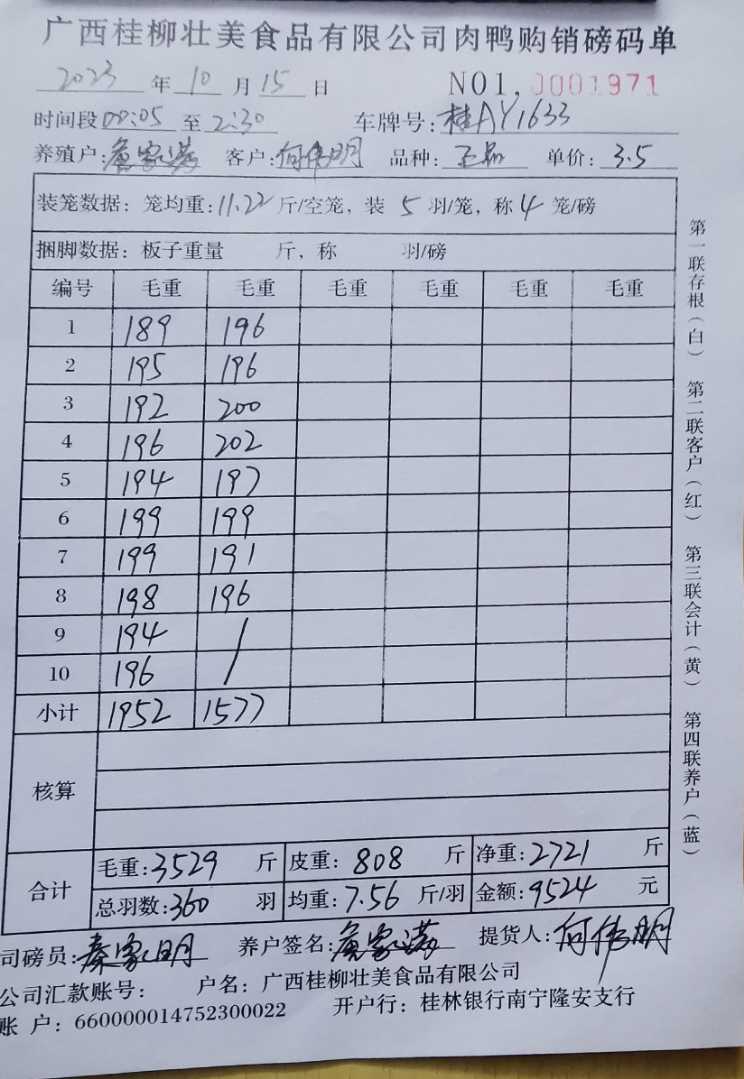 广西桂柳壮美食品有限公司肉鸭购销磅码单
2023 年 10 月 15 日 NO1, 0001971
时间段 00:05 至 2:30 车牌号: 桂AY1633
养殖户: 家满 客户: 何伟明 品种: 正品 单价: 3.5
装笼数据: 笼均重: 11.22 斤/空笼, 装 5 羽/笼, 称 4 笼/磅
捆脚数据: 板子重量 斤, 称 羽/磅
编号 毛重 毛重 毛重 毛重 毛重 毛重
1 189 196
2 195 196
3 192 200
4 196 202
5 194 197
6 199 199
7 199 191
8 198 196
9 194 /
10 196
小计 1952 1577
核算
合计 毛重: 3529 斤 皮重: 808 斤 净重: 2721 斤
总羽数: 360 羽 均重: 7.56 斤/羽 金额: 9524 元
司磅员: 秦家明 养户签名: 家满 提货人: 何伟明
公司汇款账号: 户名: 广西桂柳壮美食品有限公司
账 户: 660000014752300022 开户行: 桂林银行南宁隆安支行
第一联存根(白) 第二联客户(红) 第三联会计(黄) 第四联养户(蓝)